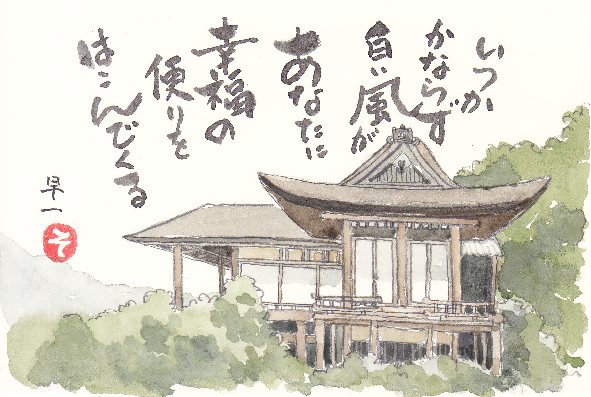 いつか
かならず
白い風が
あなたに
幸福の
便りを
はこんでくる
早一
そ